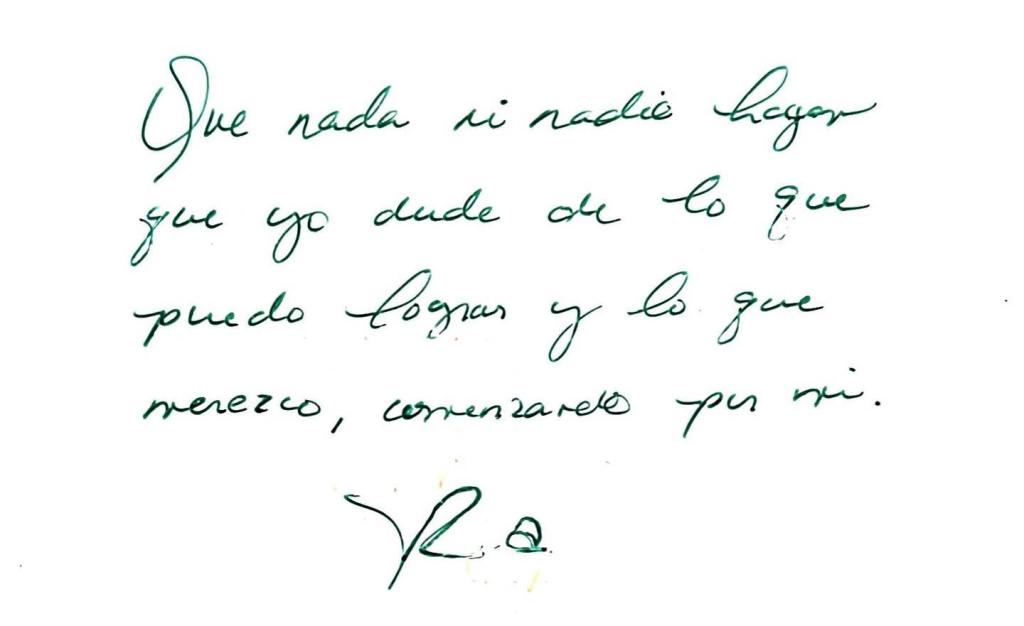 Que nada ni nadie hagan
que yo dude de lo que
puedo lograr y lo que
merezco, comenzando por mi.